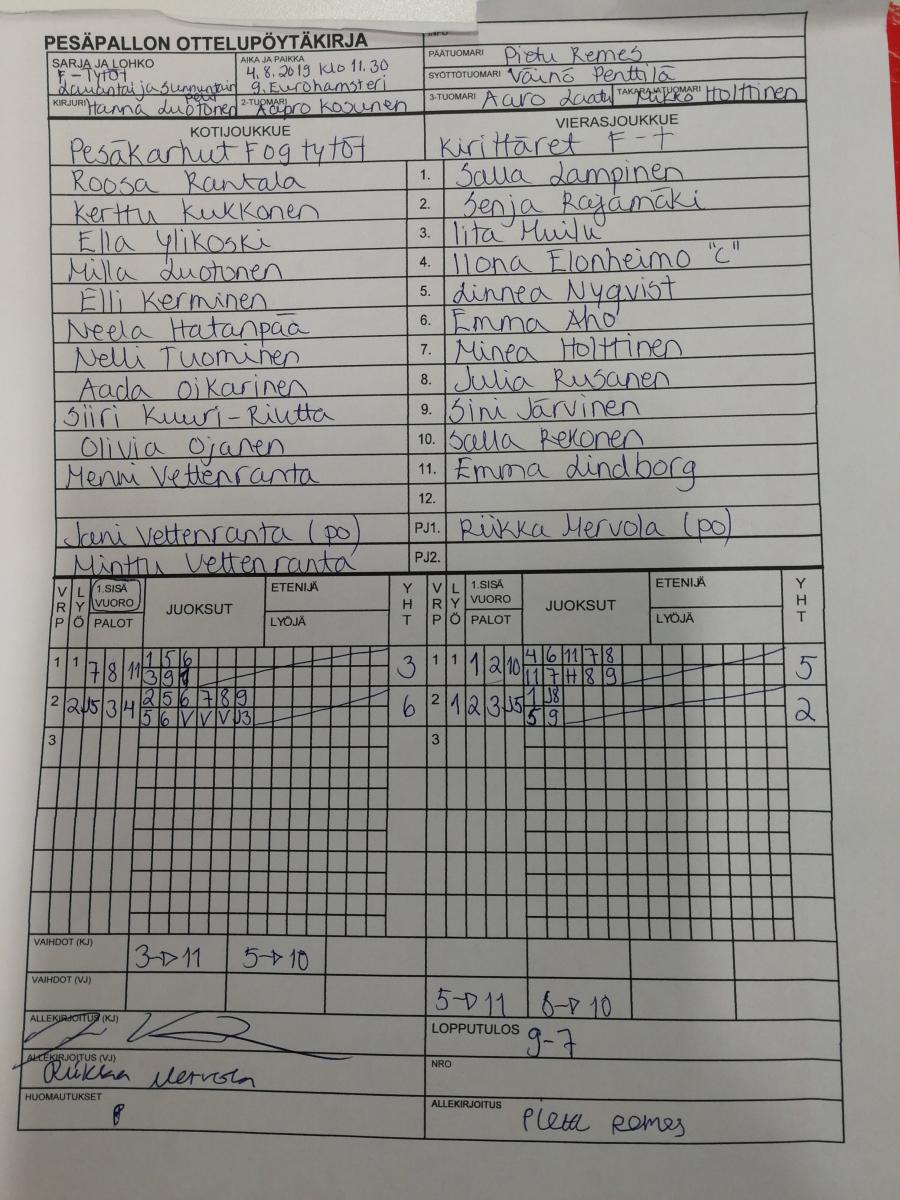 INFO
PESÄPALLON OTTELUPÖYTÄKIRJA
SARJA JA LOHKO
F-Tytöt
Lauantai ja sunnuntai
AIKA JA PAIKKA
4.8.2019 klo 11.30
9. Eurohamsteri
PÄÄTUOMARI Pietu Remes
SYÖTTÖTUOMARI Väinö Penttilä
KIRJURI Hanna Luotonen
2-TUOMARI Aapro Kosunen
3-TUOMARI Aaro Laatu
TAKARAJATUOMARI Mikko Holttinen
KOTIJOUKKUE VIERASJOUKKUE
Pesäkarhut Fog tytöt Kirittäret F-t
Roosa Rantala 1. Salla Lampinen
Kerttu Kukkonen 2. Senja Rajamäki
Ella Ylikoski 3. Iita Muilu
Milla Luotonen 4. Ilona Elonheimo "C"
Elli Kerminen 5. Linnea Nyqvist
Neela Hatanpää 6. Emma Aho
Nelli Tuominen 7. Minea Holttinen
Aada Oikarinen 8. Julia Rusanen
Siiri Kuuri-Riutta 9. Sini Järvinen
Olivia Ojanen 10. Salla Rekonen
Menni Vettenranta 11. Emma Lindborg
12.
Jani Vettenranta (po) PJ1. Riikka Mervola (po)
Minttu Vettenranta PJ2.
VRP LYÖ 1.SISÄ VUORO PALOT JUOKSUT ETENIJÄ LYÖJÄ YHT VRP LYÖ 1.SISÄ VUORO PALOT JUOKSUT ETENIJÄ LYÖJÄ YHT
1 1 7 8 11 1 5 6 3 1 1 1 2 10 4 6 11 7 8 5
3 9 11 7 H 8 9
2 2 J5 3 4 2 5 6 7 8 9 6 2 1 2 3 J5 1 J8 2
5 6 V V V J3 5 9
3 3
VAIHDOT (KJ) 3→11 5→10
VAIHDOT (VJ) 5→11 8→10
ALLEKIRJOITUS (KJ)
LOPPUTULOS 9-7
ALLEKIRJOITUS (VJ) Riikka Mervola
NRO
HUOMAUTUKSET
ALLEKIRJOITUS Pietu Remes